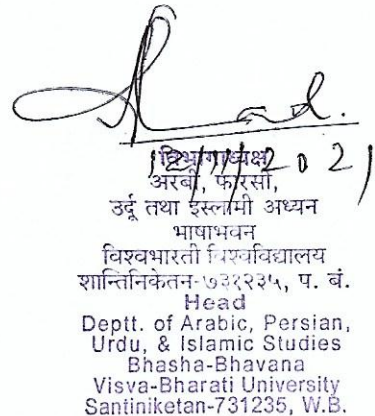 12/11/2021
विभागाध्यक्ष
अरबी, फारसी,
उर्दू तथा इस्लामी अध्यन
भाषाभवन
विश्वभारती विश्वविद्यालय
शान्तिनिकेतन-७३१२३५, प. बं.
Head
Deptt. of Arabic, Persian,
Urdu, & Islamic Studies
Bhasha-Bhavana
Visva-Bharati University
Santiniketan-731235, W.B.